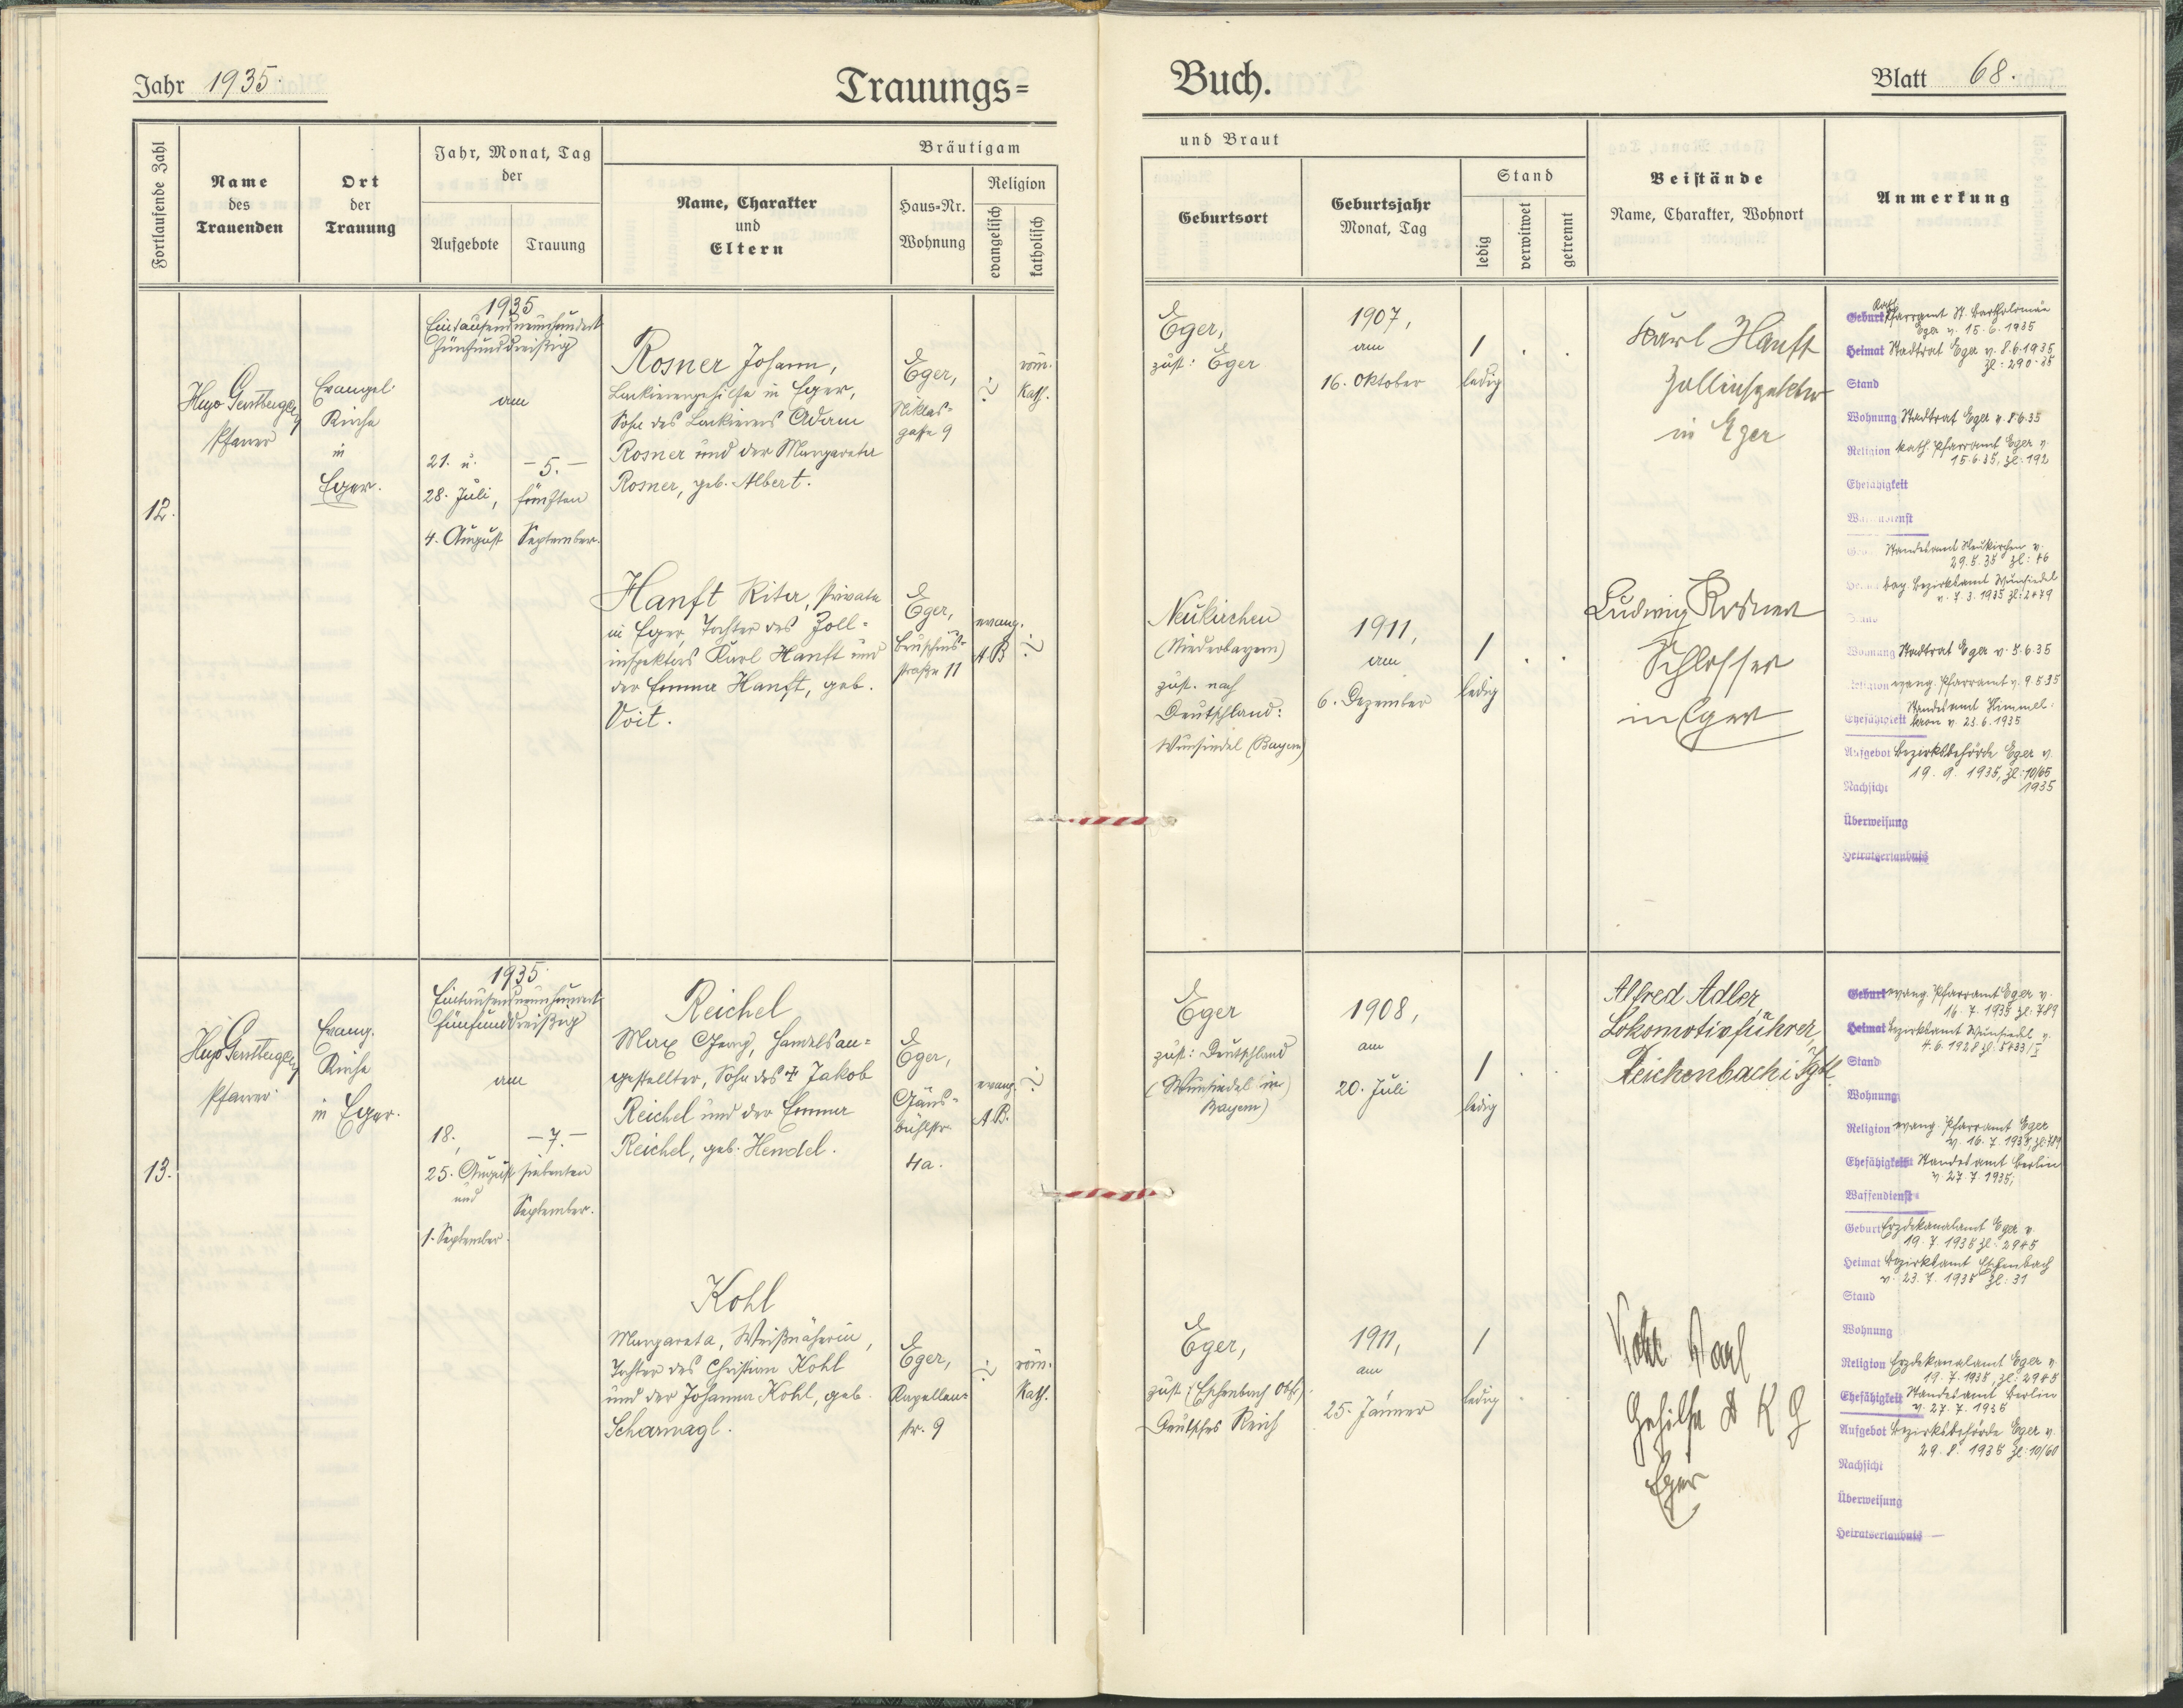 Jahr 1935.
Trauungs=
Buch.
Blatt 68.
Fortlaufende Zahl
Name
des
Trauenden
Ort
der
Trauung
Jahr, Monat, Tag
der
Aufgebote
Trauung
Bräutigam
Name, Charakter
und
Eltern
Haus=Nr.
Wohnung
Religion
evangelisch
katholisch
und Braut
Geburtsort
Geburtsjahr
Monat, Tag
Stand
ledig
verwitwet
getrennt
Beistände
Name, Charakter, Wohnort
Anmerkung
12.
Hugo Gerstberger
Pfarrer
Evangel.
Kirche
in
Eger.
1935
Eintausendneunhundert
fünfunddreißig
am
21. u.
28. Juli,
4. August
- 5. -
fünften
September.
Rosner Johann,
Lackierergehilfe in Eger,
Sohn des Lackierers Adam
Rosner und der Margareta
Rosner, geb. Albert.
Eger,
Niklas=
gasse 9
röm.
Kath.
Eger,
zust: Eger
1907,
am
16. Oktober
/
ledig
Karl Hanft
Zollinspektor
in Eger
Geburt Kath. Pfarramt St. Bartholomäu
Eger v. 15.6.1935
Heimat Stadtrat Eger v. 8.6.1935
Zl: 290-35
Stand
Wohnung Stadtrat Eger v. 8.6.35
Religion kath. Pfarramt Eger v.
15.6.35, Zl: 192
Ehefähigkeit
Hanft Rita, Private
in Eger, Tochter des Zoll=
inspektors Karl Hanft und
der Emma Hanft, geb.
Voit.
Eger,
Bruschius=
straße 11
evang.
A.B.
Neukirchen
(Niederbayern)
zust. nach
Deutschland:
Wunsiedel (Bayern)
1911,
am
6. Dezember
/
ledig
Ludwig Rosner
Schlosser
in Eger
Standesamt Neukirchen v.
29.5.35 Zl: 46
bay. Bezirksamt Wunsiedel
v. 7.3.1935 Zl: 2479
Wohnung Stadtrat Eger v. 8.6.35
Religion evang. Pfarramt v. 9.5.35
Standesamt Himmel=
Ehefähigkeit kron v. 23.6.1935
Aufgebot Bezirksbehörde Eger v.
19.9.1935, Zl: 10/65
1935
Nachsicht
Überweisung
Heiratserlaubnis
13.
Hugo Gerstberger
Pfarrer
Evang.
Kirche
in Eger.
1935.
Eintausendneunhundert
fünfunddreißig
am
18.,
25. August
und
1. September.
- 7. -
siebenten
September.
Reichel
Max Georg, Handelsan=
gestellter, Sohn des † Jakob
Reichel und der Emma
Reichel, geb. Hendel.
Eger,
Gäns=
bühlstr.
4a.
evang.
A.B.
Eger
zust: Deutschland
(Wunsiedel in
Bayern)
1908,
am
20. Juli
/
ledig
Alfred Adler,
Lokomotivführer,
Reichenbach i. Vgtl.
Geburt evang. Pfarramt Eger v.
16.7.1935 Zl: 789
Heimat Bezirksamt Wunsiedel v.
4.6.1928 Zl. 5433/I
Stand
Wohnung
Religion evang. Pfarramt Eger
v. 16.7.1935, Zl: 789
Ehefähigkeit Standesamt Berlin
v. 27.7.1935,
Waffendienst
Kohl
Margareta, Weißnäherin,
Tochter des Christian Kohl
und der Johanna Kohl, geb.
Scharnagl.
Eger,
Kapellen=
str. 9
röm.
Kath.
Eger,
zust: (Eschenbach Obpf.)
Deutsches Reich
1911,
am
25. Jänner
/
ledig
Kohl Karl
Gehilfe
Eger
Geburt Erzdekanalamt Eger v.
19.7.1935 Zl: 2945
Heimat Bezirksamt Eschenbach
v. 23.7.1935 Zl: 31
Stand
Wohnung
Religion Erzdekanalamt Eger v.
19.7.1935, Zl: 2945
Ehefähigkeit Standesamt Berlin
v. 27.7.1935
Aufgebot Bezirksbehörde Eger v.
29.8.1935 Zl: 10/60
Nachsicht
Überweisung
Heiratserlaubnis